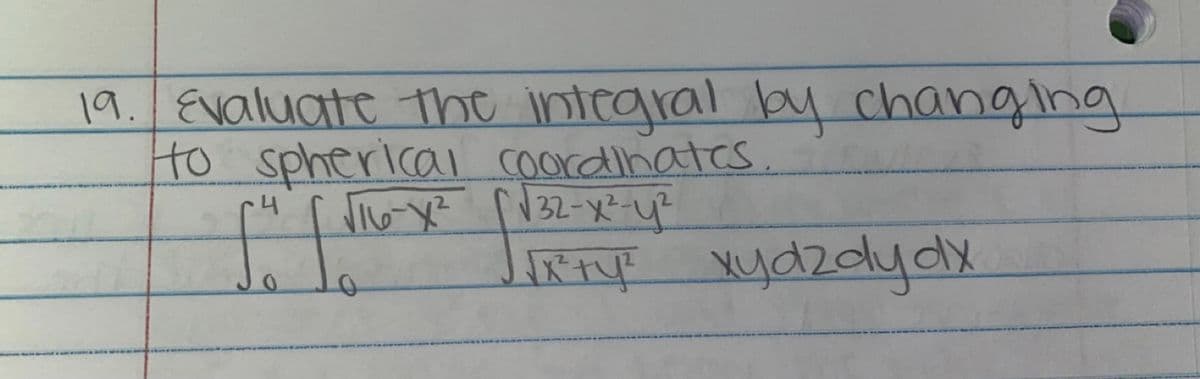 19. Evaluate the integral by changing
to spherical coordinates.
∫₀⁴ ∫₀^√(16-x²) ∫_√(x²+y²)^√(32-x²-y²) xydzdydx